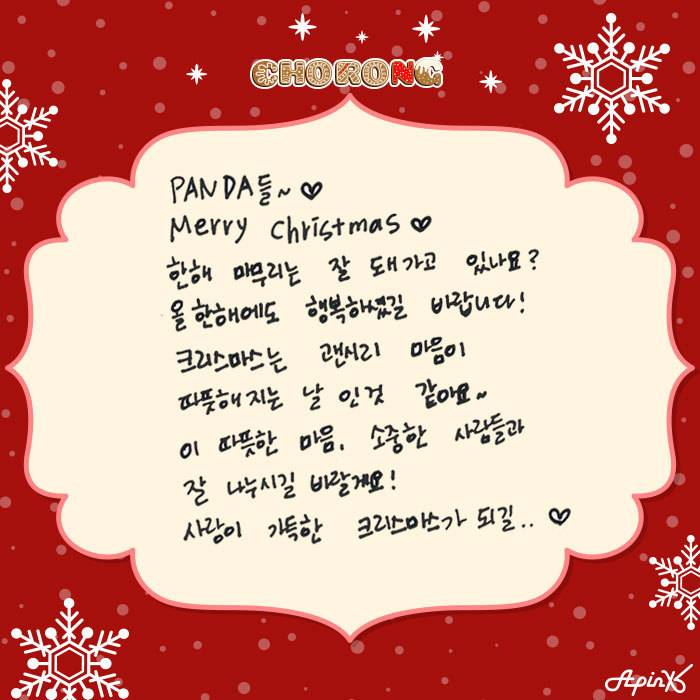 CHORONG
PANDA들~ ♡
Merry Christmas ♡
한해 마무리는 잘 돼가고 있나요?
올 한해에도 행복하셨길 바랍니다!
크리스마스는 괜시리 마음이
따뜻해지는 날 인것 같아요~
이 따뜻한 마음, 소중한 사람들과
잘 나누시길 바랄게요!
사랑이 가득한 크리스마스가 되길.. ♡
Apink